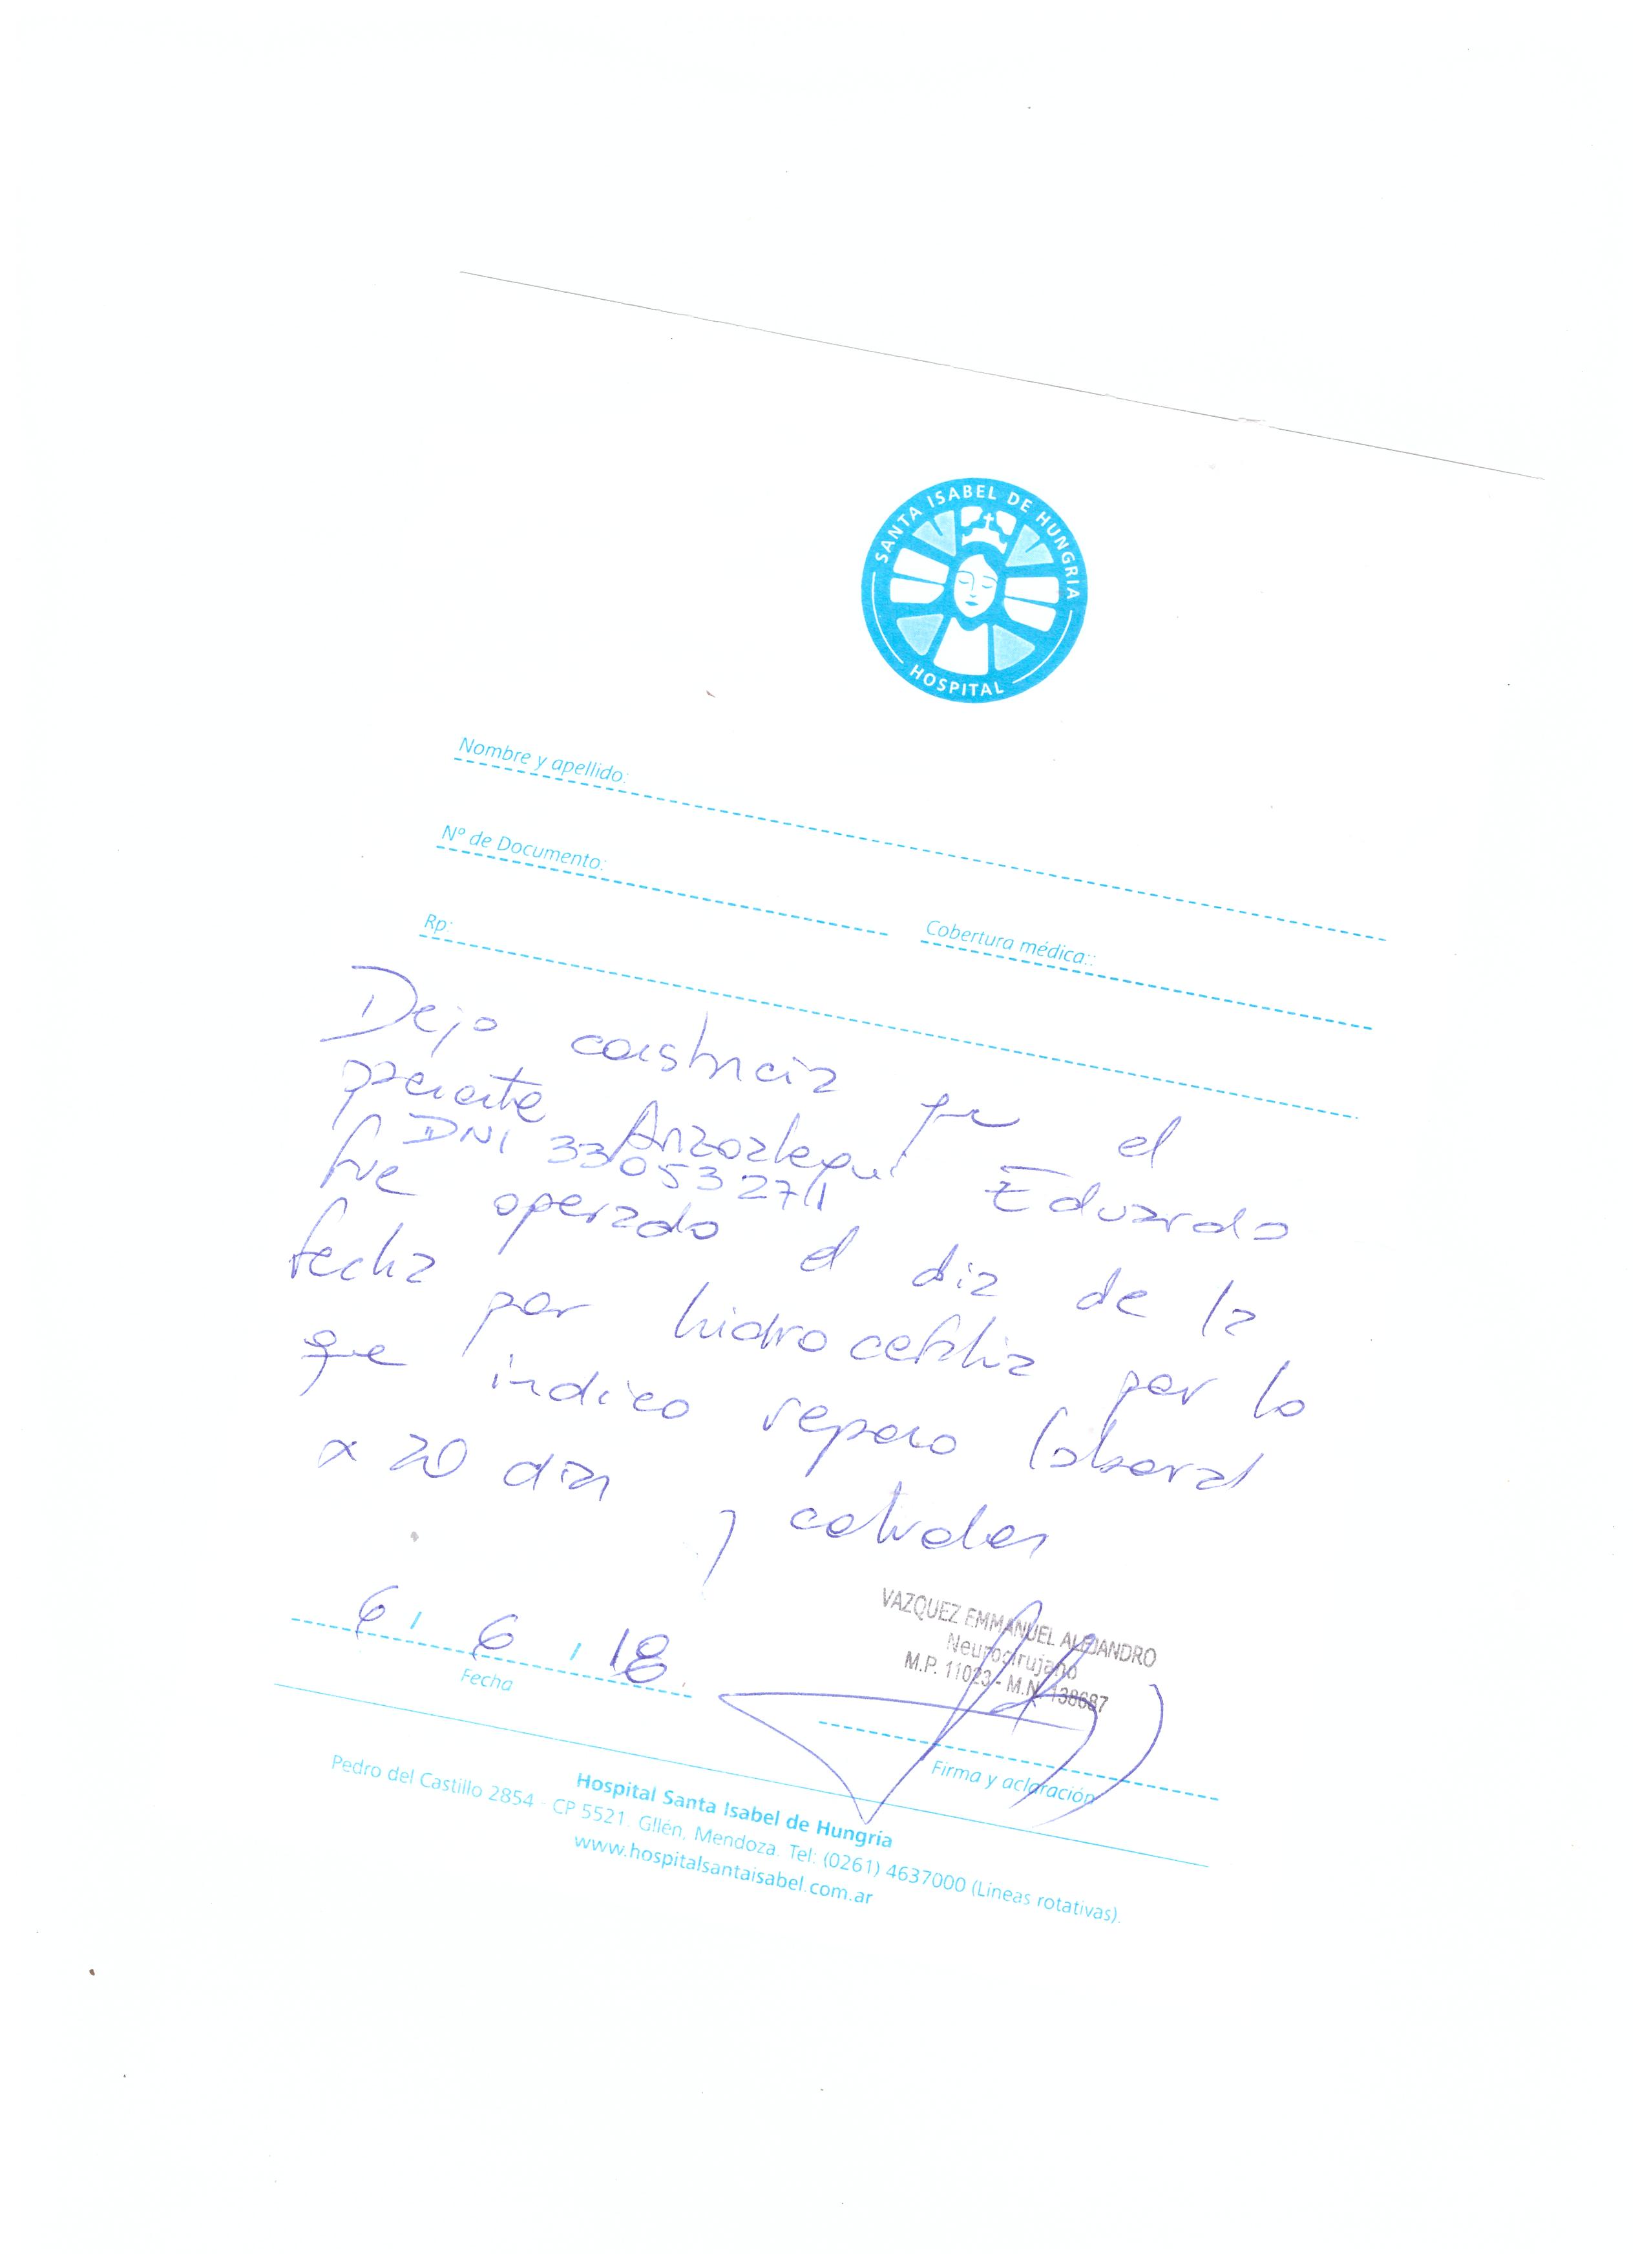 SANTA ISABEL DE HUNGRIA
HOSPITAL
Nombre y apellido:
Nº de Documento:
Cobertura médica::
Rp:
Dejo constancia que el
paciente Anzoategui Eduardo
DNI 33053271
fue operado el dia de la
fecha por hidrocefalia por lo
que indico reposo laboral
x 20 dias y
6 / 6 / 18
Fecha
VAZQUEZ EMMANUEL ALEJANDRO
Neurocirujano
M.P. 11023 - M.N. 138687
Firma y aclaración
Hospital Santa Isabel de Hungria
Pedro del Castillo 2854 - CP 5521. Gllén, Mendoza. Tel: (0261) 4637000 (Lineas rotativas).
www.hospitalsantaisabel.com.ar